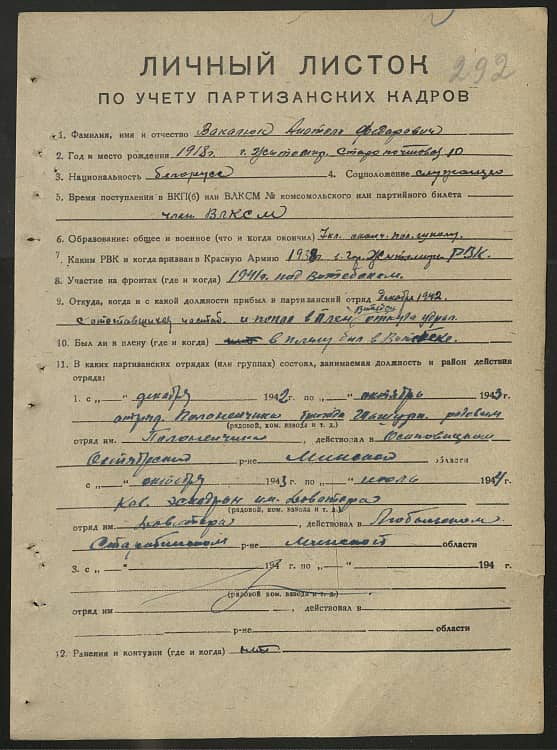 292
ЛИЧНЫЙ ЛИСТОК
ПО УЧЕТУ ПАРТИЗАНСКИХ КАДРОВ
1. Фамилия, имя и отчество Вакалюк Анатоли Федарович
2. Год и место рождения 1918г. г. Житомир. Старо почтовая 10
3. Национальность белорусс 4. Соцположение служащий
5. Время поступления в ВКП(б) или ВЛКСМ № комсомольского или партийного билета
член ВЛКСМ
6. Образование: общее и военное (что и когда окончил) 7кл.
7. Каким РВК и когда призван в Красную Армию 1938 г. Гор. Житомир РВК.
8. Участие на фронтах (где и когда) 1941г. под Витебском.
9. Откуда, когда и с какой должности прибыл в партизанский отряд декабря 1942.
и попал в плен Витебск откуда
10. Был ли в плену (где и когда) в плену был в Витебске.
11. В каких партизанских отрядах (или группах) состоял, занимаемая должность и район действия
отряда:
1. с „ “ декабря 1942 г. по „ “ октябрь 1943 г.
рядовым
(рядовой, ком. взвода и т. д.)
отряд им. , действовал в Осиповицком
Октябрьском р-не Минской области
с „ “ октября 1943 г. по „ “ июль 1944 г.
Кав. эскадрон им. Доватора
(рядовой, ком. взвода и т. д.)
отряд им. Доватора , действовал в Любанском
Старобинском р-не Минской области
3. с „ “ 194 г. по „ “ 194 г.
(рядовой ком. взвода и т. д.)
отряд им. , действовал в
р-не области
12. Ранения и контузии (где и когда) нет